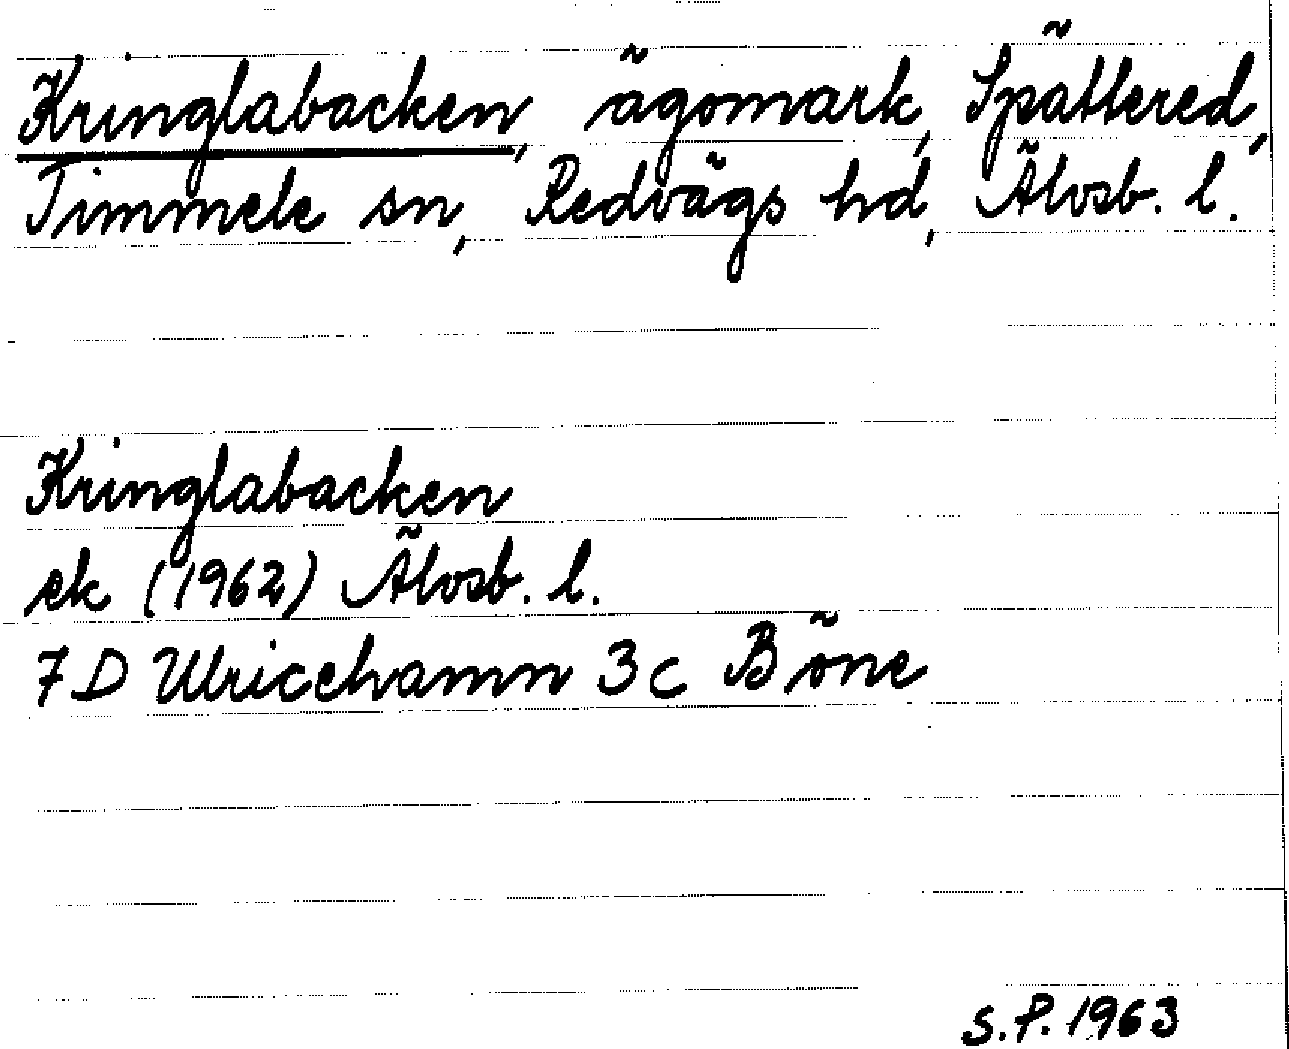 Kringlabacken, ägomark, Spättered,
Timmele sn, Redvägs hd, Älvsb. l.
Kringlabacken
ek (1962) Älvsb. l.
7 D Ulricehamn 3c Böne
S.P. 1963